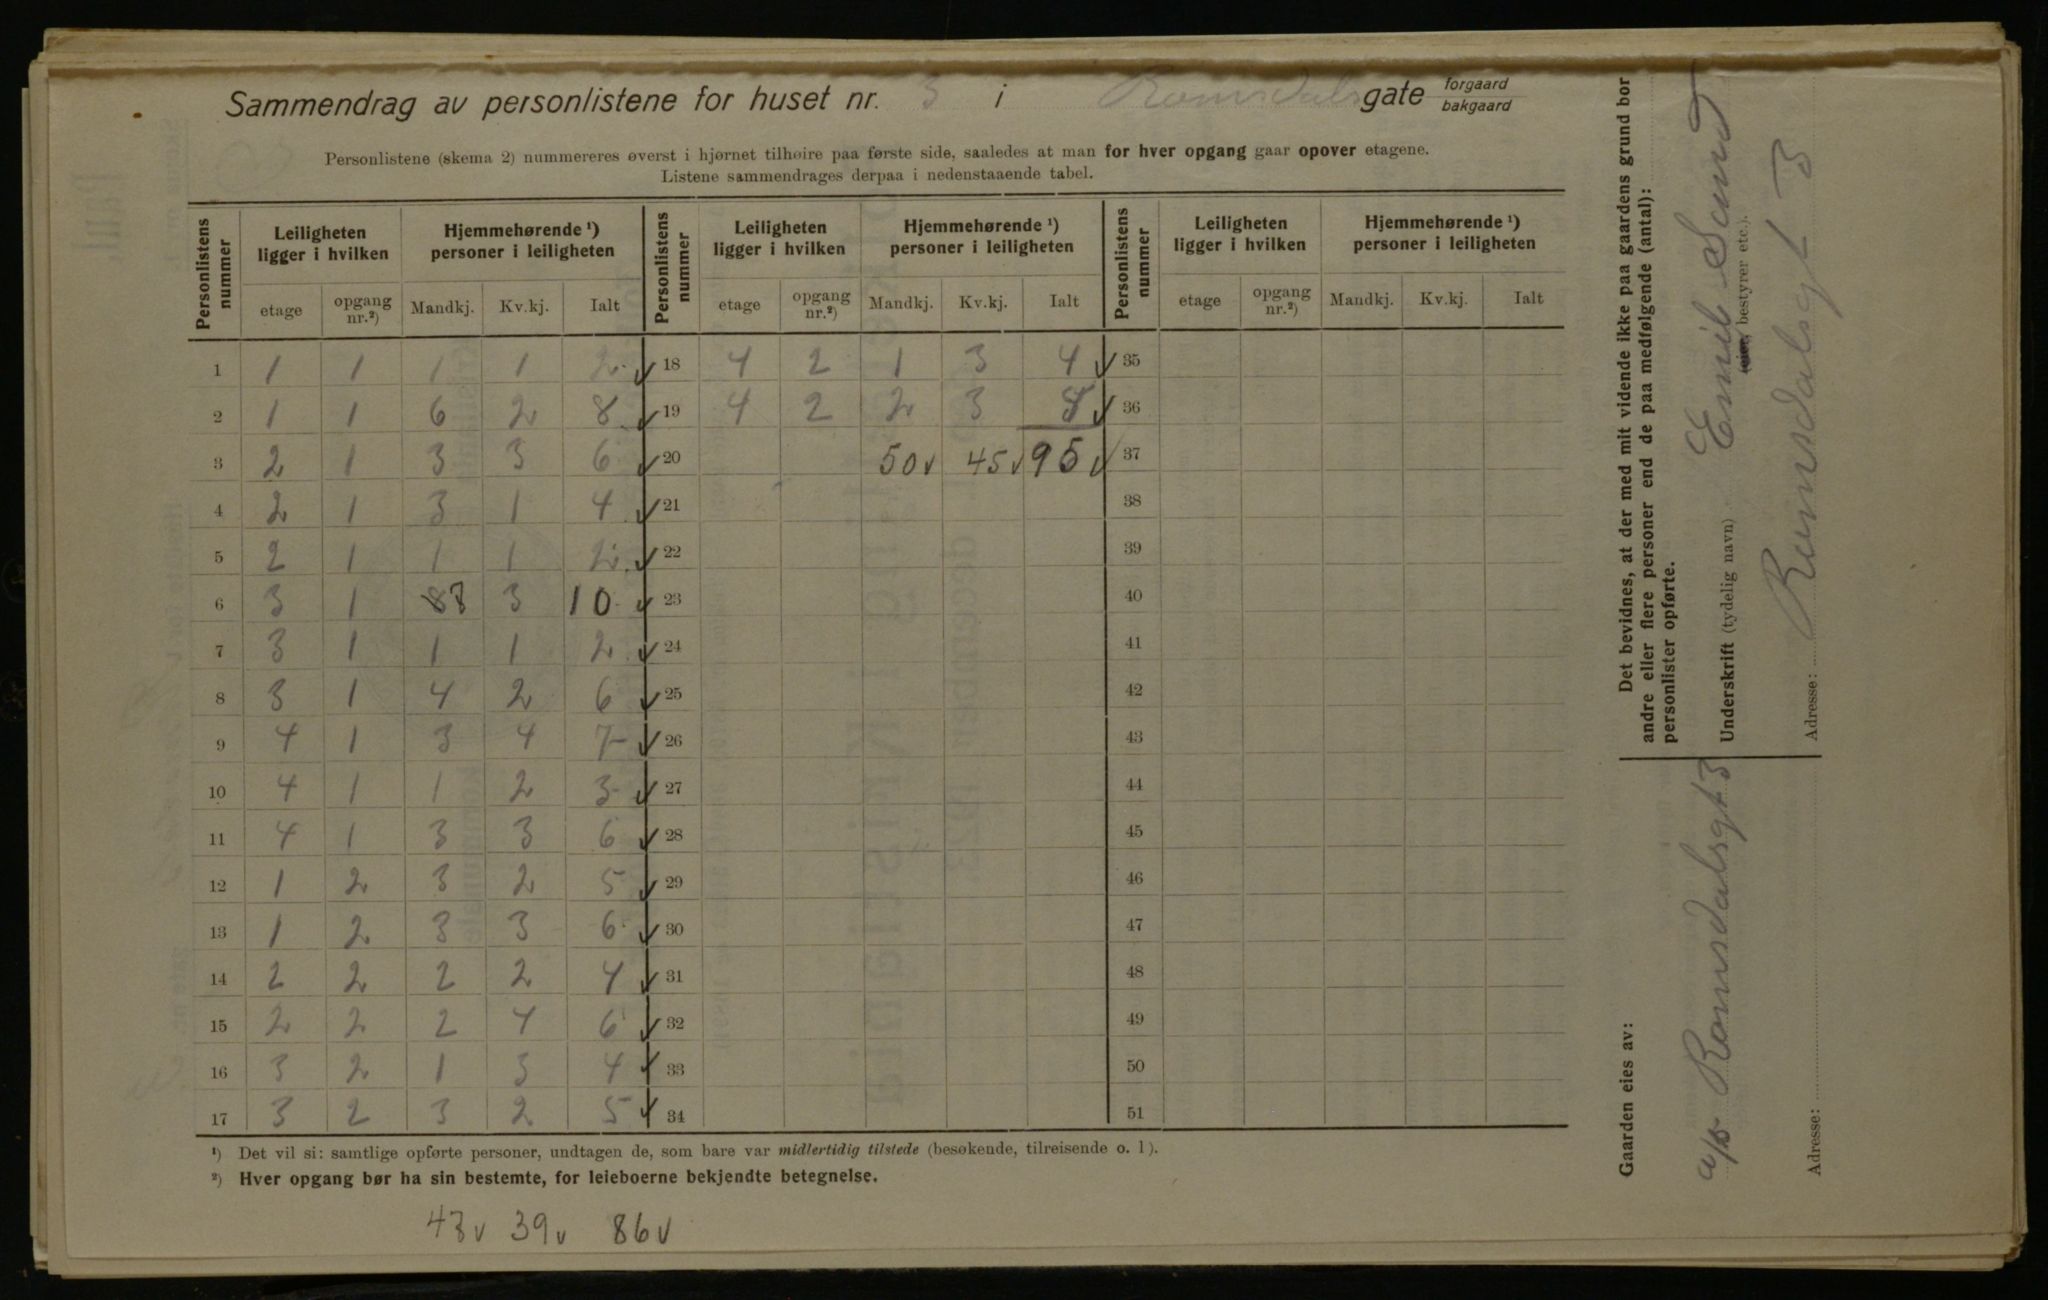 Sammendrag av personlistene for huset nr. 3 i Romsdals gate forgaard bakgaard
Personlistene (skema 2) nummereres øverst i hjørnet tilhøire paa første side, saaledes at man for hver opgang gaar opover etagene.
Listene sammendrages derpaa i nedenstaaende tabel.
Personlistens nummer | Leiligheten ligger i hvilken | Hjemmehørende ¹) personer i leiligheten | Personlistens nummer | Leiligheten ligger i hvilken | Hjemmehørende ¹) personer i leiligheten | Personlistens nummer | Leiligheten ligger i hvilken | Hjemmehørende ¹) personer i leiligheten
etage | opgang nr.²) | Mandkj. | Kv.kj. | Ialt | etage | opgang nr.²) | Mandkj. | Kv.kj. | Ialt | etage | opgang nr.²) | Mandkj. | Kv.kj. | Ialt
1 1 1 1 1 2 ✓ 18 4 2 1 3 4 ✓ 35
2 1 1 6 2 8 ✓ 19 4 2 2 3 ✓ 36
3 2 1 3 3 6 ✓ 20 50 ✓ 45 ✓ 95 ✓ 37
4 2 1 3 1 4 ✓ 21 38
5 2 1 1 1 2 ✓ 22 39
6 3 1 3 10 ✓ 23 40
7 3 1 1 1 2 ✓ 24 41
8 3 1 4 2 6 ✓ 25 42
9 4 1 3 4 7 ✓ 26 43
10 4 1 1 2 3 ✓ 27 44
11 4 1 3 3 6 ✓ 28 45
12 1 2 3 2 5 ✓ 29 46
13 1 2 3 3 6 ✓ 30 47
14 2 2 2 2 4 ✓ 31 48
15 2 2 2 4 6 ✓ 32 49
16 3 2 1 3 4 ✓ 33 50
17 3 2 3 2 5 ✓ 34 51
¹) Det vil si: samtlige opførte personer, undtagen de, som bare var midlertidig tilstede (besøkende, tilreisende o. l).
²) Hver opgang bør ha sin bestemte, for leieboerne bekjendte betegnelse.
47 ✓ 39 ✓ 86 ✓
Det bevidnes, at der med mit vidende ikke paa gaardens grund bor
andre eller flere personer end de paa medfølgende (antal):
personlister opførte.
Underskrift (tydelig navn) Emil Sund
(eier, bestyrer etc.).
Adresse: Romsdalsgt 3
Gaarden eies av: a/s Romsdalsgt 3
Adresse: